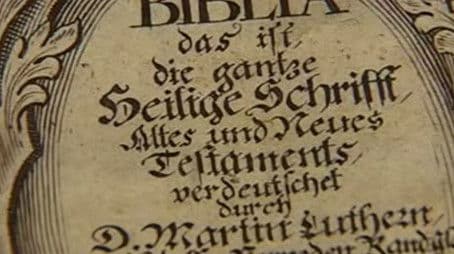 BIBLIA
das ist,
die gantze
Heilige Schrifft,
Altes und Neues
Testaments,
verdeutschet
durch
D. Martin Luthern,